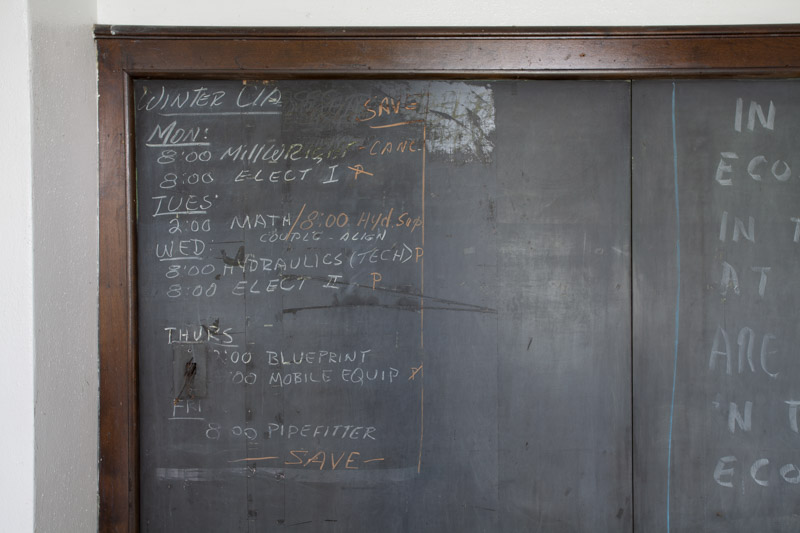 WINTER
SAVE
MON:
8:00 MILLWRIGHT - CANC.
8:00 ELECT I
TUES:
2:00 MATH / 8:00 Hyd. Sup
COUPLE - ALIGN
WED:
8:00 HYDRAULICS (TECH) P
8:00 ELECT II P
THURS
:00 BLUEPRINT
:00 MOBILE EQUIP
FRI
8:00 PIPEFITTER
— SAVE —
IN
ECO
IN T
AT
ARE
'N T
ECO